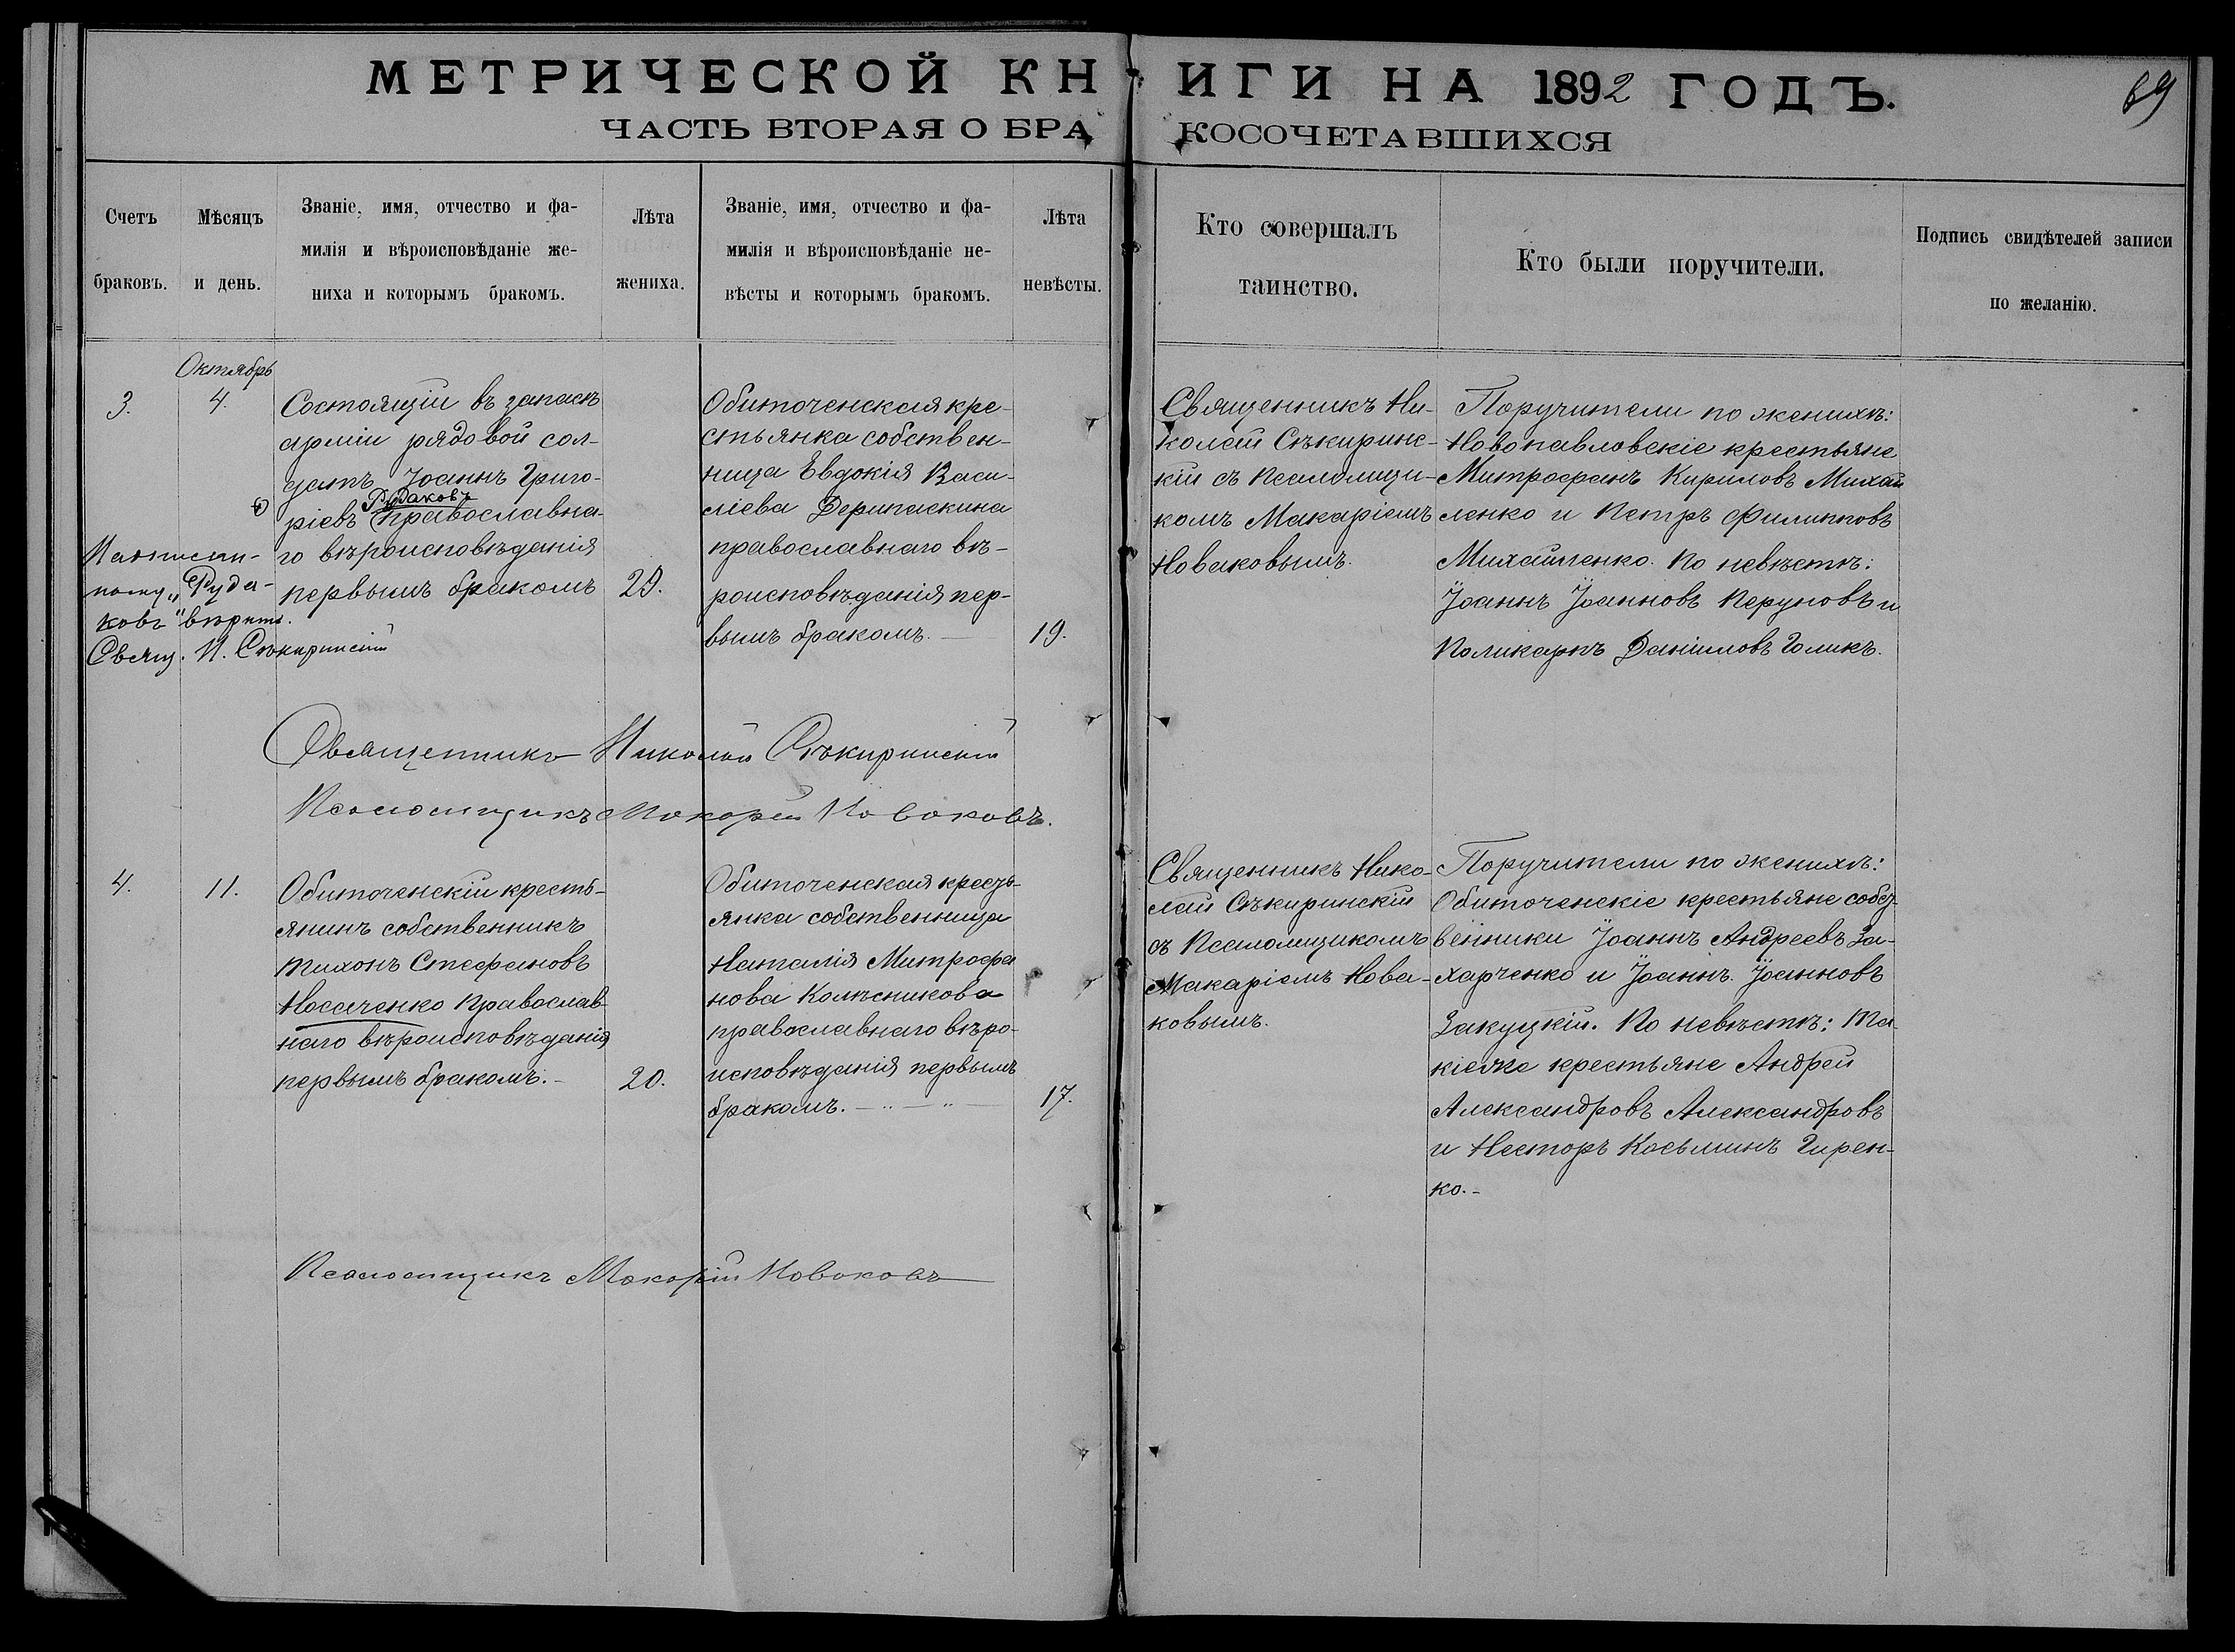 МЕТРИЧЕСКОЙ КНИГИ НА 1892 ГОДЪ.
69
ЧАСТЬ ВТОРАЯ О БРАКОСОЧЕТАВШИХСЯ
Счетъ
браковъ.
Мѣсяцъ
и день.
Званіе, имя, отчество и фа-
милія и вѣроисповѣданіе же-
ниха и которымъ бракомъ.
Лѣта
жениха.
Званіе, имя, отчество и фа-
милія и вѣроисповѣданіе не-
вѣсты и которымъ бракомъ.
Лѣта
невѣсты.
Кто совершалъ
таинство.
Кто были поручители.
Подпись свидѣтелей записи
по желанію.
Октябрь
3.
4.
Состоящій въ запасѣ
арміи рядовой сол-
датъ Іоаннъ Григо-
Рудаковъ
ріевъ православна-
го вѣроисповѣданія
первымъ бракомъ
29.
Надписан-
ному „Руда-
ковъ" вѣрить.
Свящ. Н. Сѣкиринскій
Обиточенская кре-
стьянка собствен-
ница Евдокія Васи-
ліева Дерипаскина
православнаго вѣ-
роисповѣданія пер-
вымъ бракомъ.
19.
Священникъ Ни-
колай Сѣкиринс-
кій съ Псаломщи-
комъ Макаріемъ
Новаковымъ.
Поручители по женихѣ:
Новопавловскіе крестьяне
Митрофанъ Кириловъ Михай
ленко и Петръ Филипповъ
Михайленко. По невѣстѣ:
Іоаннъ Іоанновъ Перуновъ и
Поликарпъ Даніиловъ Голикъ.
Священникъ Николай Сѣкиринскій
Псаломщикъ Макарій Новаковъ.
4.
11.
Обиточенскій кресть-
янинъ собственникъ
Тихонъ Стефановъ
Носаченко Православ-
наго вѣроисповѣданія
первымъ бракомъ.
20.
Обиточенская кресть-
янка собственница
Наталія Митрофа
нова Колѣсникова
православнаго вѣро-
исповѣданія первымъ
бракомъ.
17.
Священникъ Нико-
лай Сѣкиринскій
съ Псаломщикомъ
Макаріемъ Нова-
ковымъ.
Поручители по женихѣ:
Обиточенскіе крестьяне собст
венники Іоаннъ Андреевъ За-
харченко и Іоаннъ Іоанновъ
Закуцкій. По невѣстѣ: Та-
кіеже крестьяне Андрей
Александровъ Александровъ
и Несторъ Косьминъ Гирен-
ко.
Псаломщикъ Макарій Новаковъ